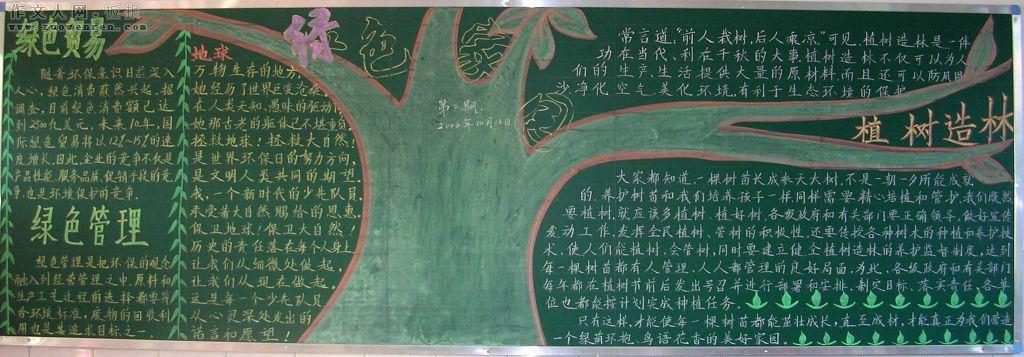 作文人网·板报
www.zuowenren.com
绿色贸易
随着环保意识日益深入
人心,绿色消费蔚然兴起,据
调查,目前绿色消费额已达
到2500亿美元,未来10年,国
际绿色贸易将以12%-15%的速
度增长,因此,企业的竞争不仅是
产品性能、服务品质、促销手段的竞
争,也是环境保护的竞争。
绿色管理
绿色管理是把环保的观念
融入到经营管理之中,原料和
生产工艺过程的选择都要符
合环境标准,废物的回收利
用也是其追求目标之一。
地球
万物生存的地方,
她经历了世界巨变沧桑
在人类无知、愚昧的驱动
她那古老的躯体已不堪重负
拯救地球!拯救大自然!
是世界环保日的努力方向,
是文明人类共同的期望。
我,一个新时代的少先队员,
承受着大自然赐给的恩惠。
保卫地球!保卫大自然!
历史的责任落在每个人身上
让我们从细微处做起,
让我们从现在做起。
这是每一个少先队员
从心灵深处发出的
诺言和愿望!
绿色
第二期
2006年10月16日
常言道:“前人栽树,后人乘凉”可见,植树造林是一件
功在当代、利在千秋的大事,植树造林不仅可以为人
们的生产、生活提供大量的原材料,而且还可以防风固
沙、净化空气、美化环境,有利于生态环境的保护。
植树造林
大家都知道,一棵树苗长成参天大树,不是一朝一夕所能成就
的,养护树苗和我们培养孩子一样同样需要精心培植和管护,我们既然
要植树,就应该多植树、植好树,各级政府和有关部门要正确领导,做好宣传
发动工作,发挥全民植树、管树的积极性,还要传授各种树木的种植和养护技
术,使人们能植树、会管树,同时要建立健全植树造林的养护监督制度,达到
每一棵树苗都有人管理、人人都管理的良好局面,为此,各级政府和有关部门
每年都在植树节前后发出号召并进行部署和安排,制定目标、落实责任,各单
位也都能按计划完成种植任务。
只有这样,才能使每一棵树苗都能茁壮成长,直至成材,才能真正为我们营造
一个绿荫环抱、鸟语花香的美好家园。